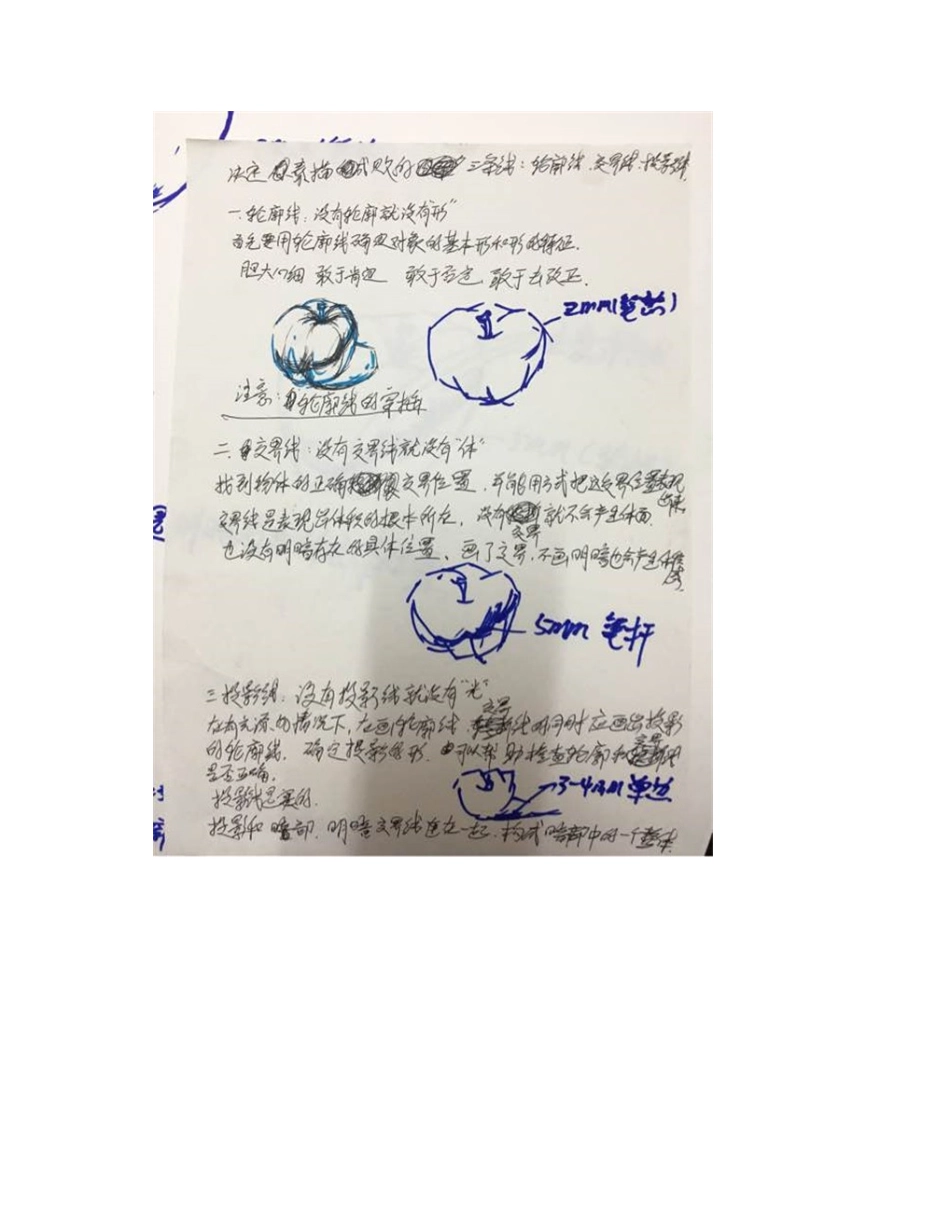 决定素描成败的三条线：轮廓线、交界线、投影线
一、轮廓线：没有轮廓就没有"形"
首先要用轮廓线确定对象的基本形和形的特征.
胆大心细 敢于肯定 敢于否定 敢于去改正.
2mm(笔芯)
注意：轮廓线的穿插
二、交界线：没有交界线就没有"体"
找到物体的正确交界位置，并能用方式把这交界位置表现出来
交界线是表现体积的根本所在，没有交界就不会产生体面
也没有明暗存在的具体位置、画了交界，不画明暗也会产生体感
5mm 笔杆
三、投影线：没有投影线就没有"光"
在有光源的情况下，在画轮廓线、交界线的同时应画出投影
的轮廓线. 确定投影的形. 也可以帮助检查轮廓和交界
是否正确.
3-4mm
投影线是实的.
投影和暗部、明暗交界线连在一起、构成暗部中的一个整体